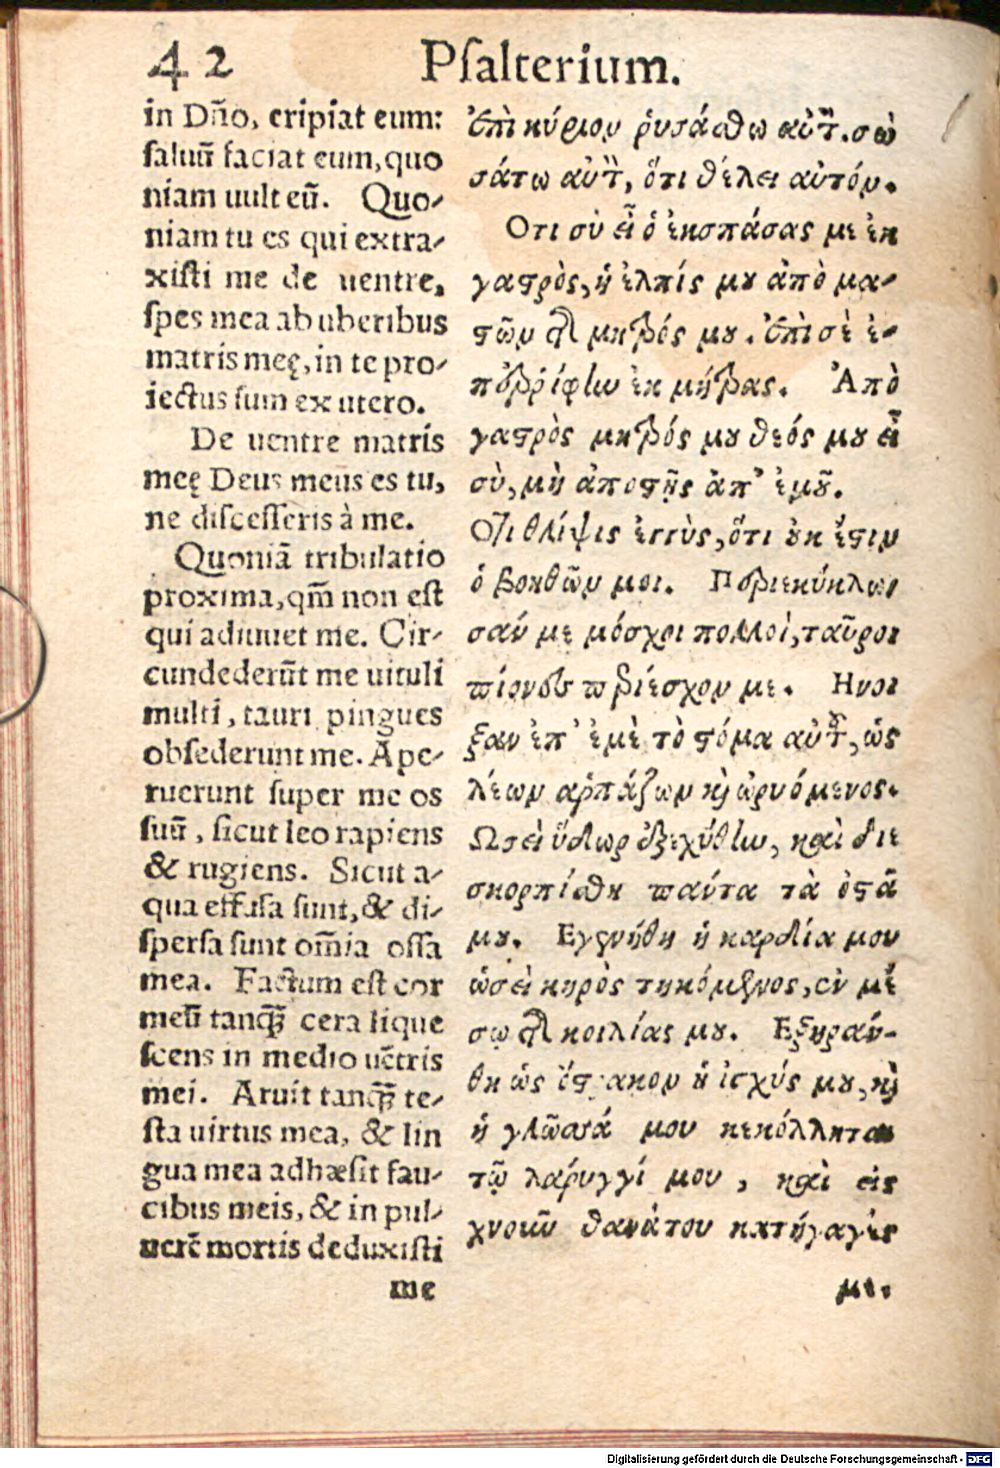 42 Psalterium.
in Dño, eripiat eum:
saluũ faciat eum, quo
niam uult eũ. Quo-
niam tu es qui extra-
xisti me de uentre,
spes mea ab uberibus
matris meę, in te pro-
iectus sum ex utero.
De uentre matris
meę Deus meus es tu,
ne discesseris à me.
Quoniã tribulatio
proxima, qm̃ non est
qui adiuuet me. Cir-
cundederũt me uituli
multi, tauri pingues
obsederunt me. Ape-
ruerunt super me os
suũ, sicut leo rapiens
& rugiens. Sicut a-
qua effusa sunt, & di-
spersa sunt om̃ia ossa
mea. Factum est cor
meũ tanq̃ cera lique
scens in medio uẽtris
mei. Aruit tanq̃ te-
sta uirtus mea, & lin
gua mea adhæsit fau-
cibus meis, & in pul-
uerẽ mortis deduxisti
me
ἐπὶ κύριον ῥυσάσθω αὐτόν. σω
σάτω αὐτόν, ὅτι θέλει αὐτόν.
Οτι σὺ εἶ ὁ ἐκσπάσας με ἐκ
γαστρὸς, ἡ ἐλπίς μου ἀπὸ μα-
στῶν τῆς μητρός μου. ἐπὶ σὲ ἐ-
περρίφην ἐκ μήτρας. Ἀπὸ
γαστρὸς μητρός μου θεός μου εἶ
σὺ, μὴ ἀποστῇς ἀπ' ἐμοῦ.
Οτι θλίψις ἐγγὺς, ὅτι οὐκ ἔστιν
ὁ βοηθῶν μοι. Περιεκύκλω
σάν με μόσχοι πολλοὶ, ταῦροι
πίονες περιέσχον με. Ηνοι
ξαν ἐπ' ἐμὲ τὸ στόμα αὐτῶν, ὡς
λέων ἁρπάζων καὶ ὠρυόμενος.
Ωσεὶ ὕδωρ ἐξεχύθην, καὶ διε
σκορπίσθη πάντα τὰ ὀστᾶ
μου. Εγενήθη ἡ καρδία μου
ὡσεὶ κηρὸς τηκόμενος, ἐν μέ
σῳ τῆς κοιλίας μου. Εξηράν-
θη ὡς ὄστρακον ἡ ἰσχύς μου, καὶ
ἡ γλῶσσά μου κεκόλληται
τῷ λάρυγγί μου, καὶ εἰς
χνοῦν θανάτου κατήγαγές
με.
Digitalisierung gefördert durch die Deutsche Forschungsgemeinschaft - DFG